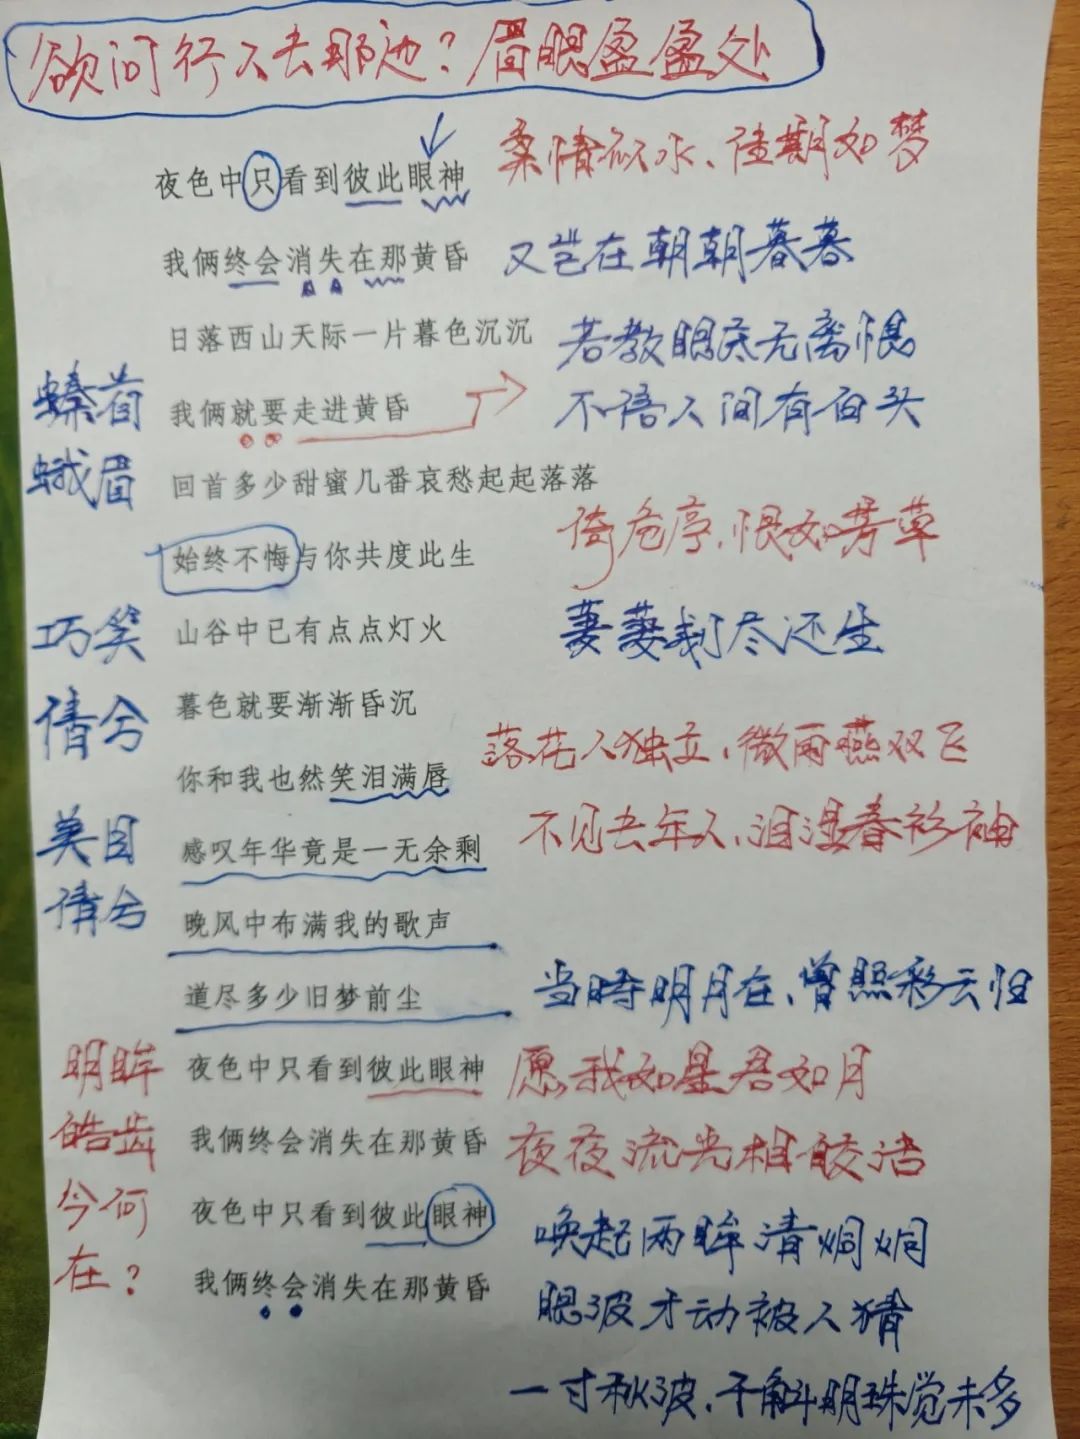 欲问行人去那边？眉眼盈盈处
夜色中只看到彼此眼神
柔情似水、佳期如梦
我俩终会消失在那黄昏
又岂在朝朝暮暮
日落西山天际一片暮色沉沉
若教眼底无离恨
螓首
我俩就要走进黄昏
不信人间有白头
蛾眉
回首多少甜蜜几番哀愁起起落落
倚危亭，恨如芳草
始终不悔与你共度此生
巧笑
山谷中已有点点灯火
萋萋刬尽还生
倩兮
暮色就要渐渐昏沉
落花人独立、微雨燕双飞
你和我也然笑泪满唇
美目
感叹年华竟是一无余剩
不见去年人、泪湿春衫袖
倩兮
晚风中布满我的歌声
道尽多少旧梦前尘
当时明月在、曾照彩云归
明眸
夜色中只看到彼此眼神
愿我如星君如月
皓齿
我俩终会消失在那黄昏
夜夜流光相皎洁
今何
夜色中只看到彼此眼神
唤起两眸清炯炯
在？
我俩终会消失在那黄昏
眼波才动被人猜
一寸秋波，千斛明珠觉未多